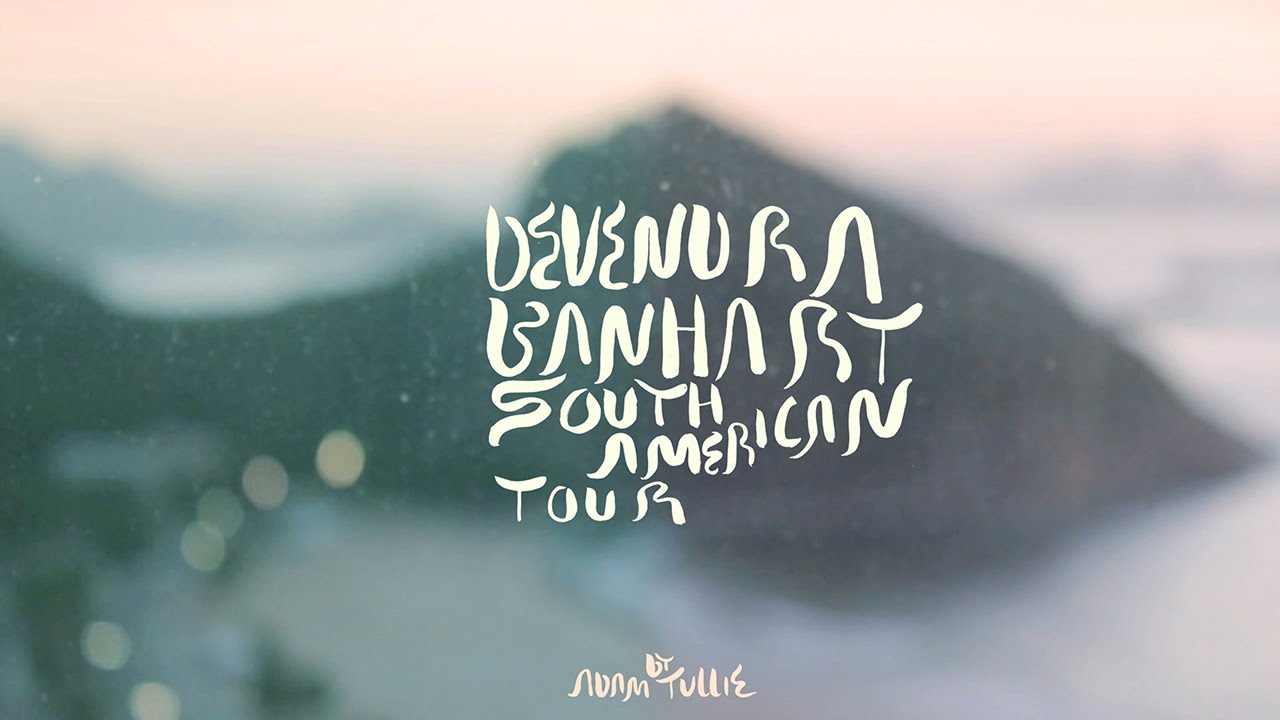 DEVENDRA
BANHART
SOUTH
AMERICAN
TOUR
BY
ADAM TULLIE